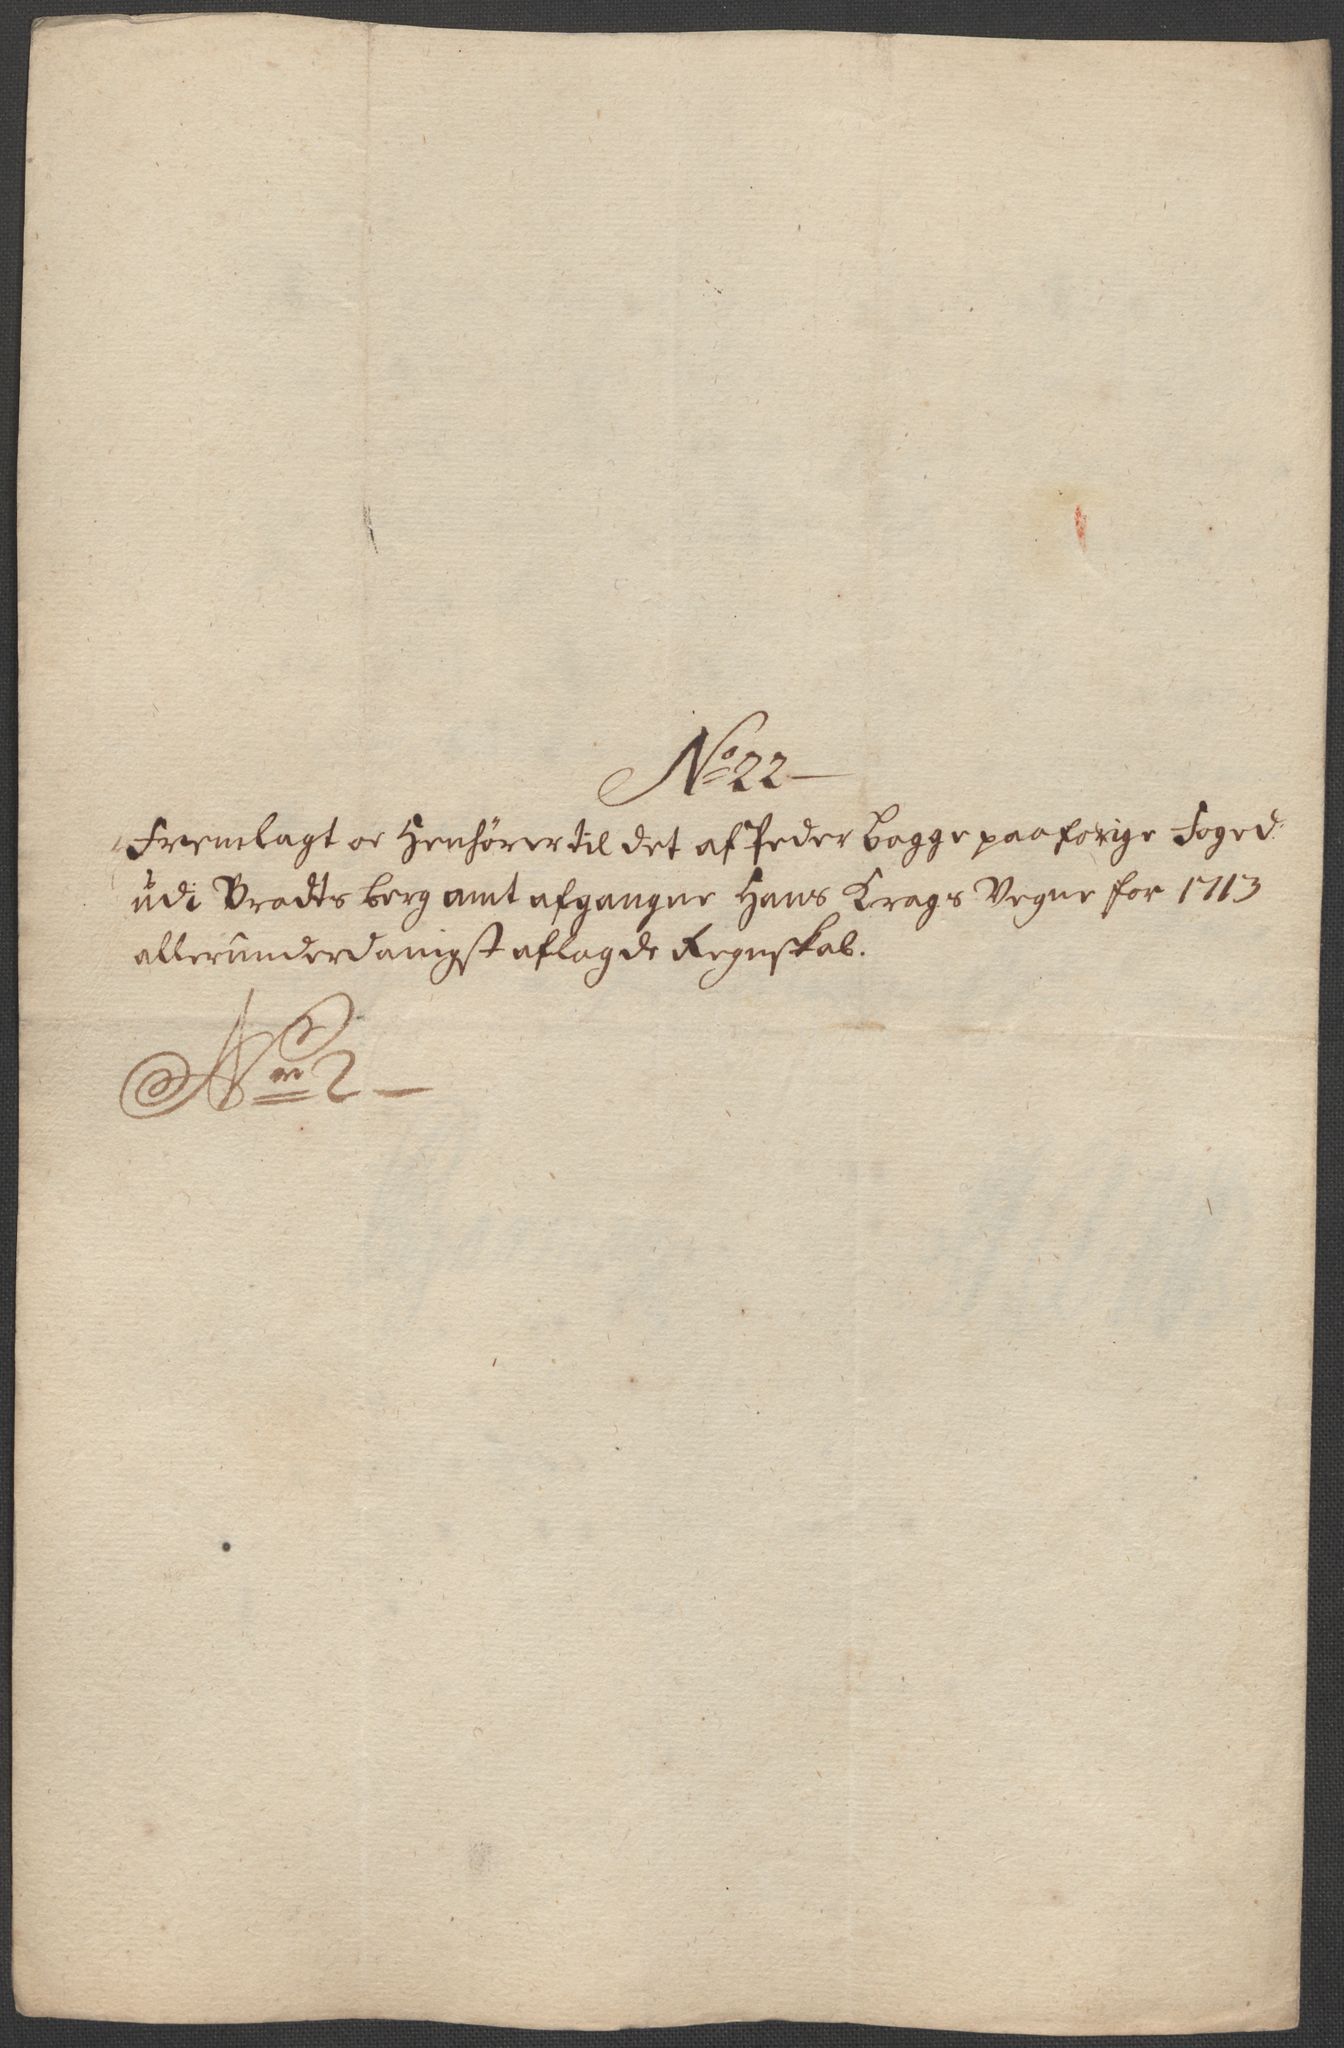 No 22
Fremlagt oc Henhører til det af Peder Bagge paa forige Foged
udi Bradtsberg amt afgangne Hans Krags Vegne for 1713
allerunderdanigst aflagde Regnskab.
No 2